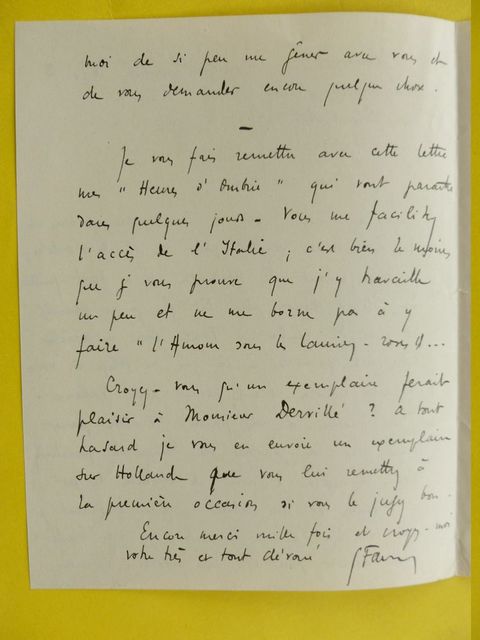 moi de si peu me gêner avec vous et
de vous demander encore quelque chose.
—
Je vous fais remettre avec cette lettre
mes "Heures d'Ombrie" qui vont paraître
dans quelques jours - Vous me facilitez
l'accès de l'Italie ; c'est bien le moins
que je vous prouve que j'y travaille
un peu et ne me borne pas à y
faire "l'Amour sous les lauriers-roses"...
Croyez-vous qu'un exemplaire ferait
plaisir à Monsieur Dervillé ? à tout
hasard je vous en envoie un exemplaire
sur Hollande que vous lui remettrez à
la première occasion si vous le jugez bon.
Encore merci mille fois et croyez-moi
votre très et tout dévoué GFaure